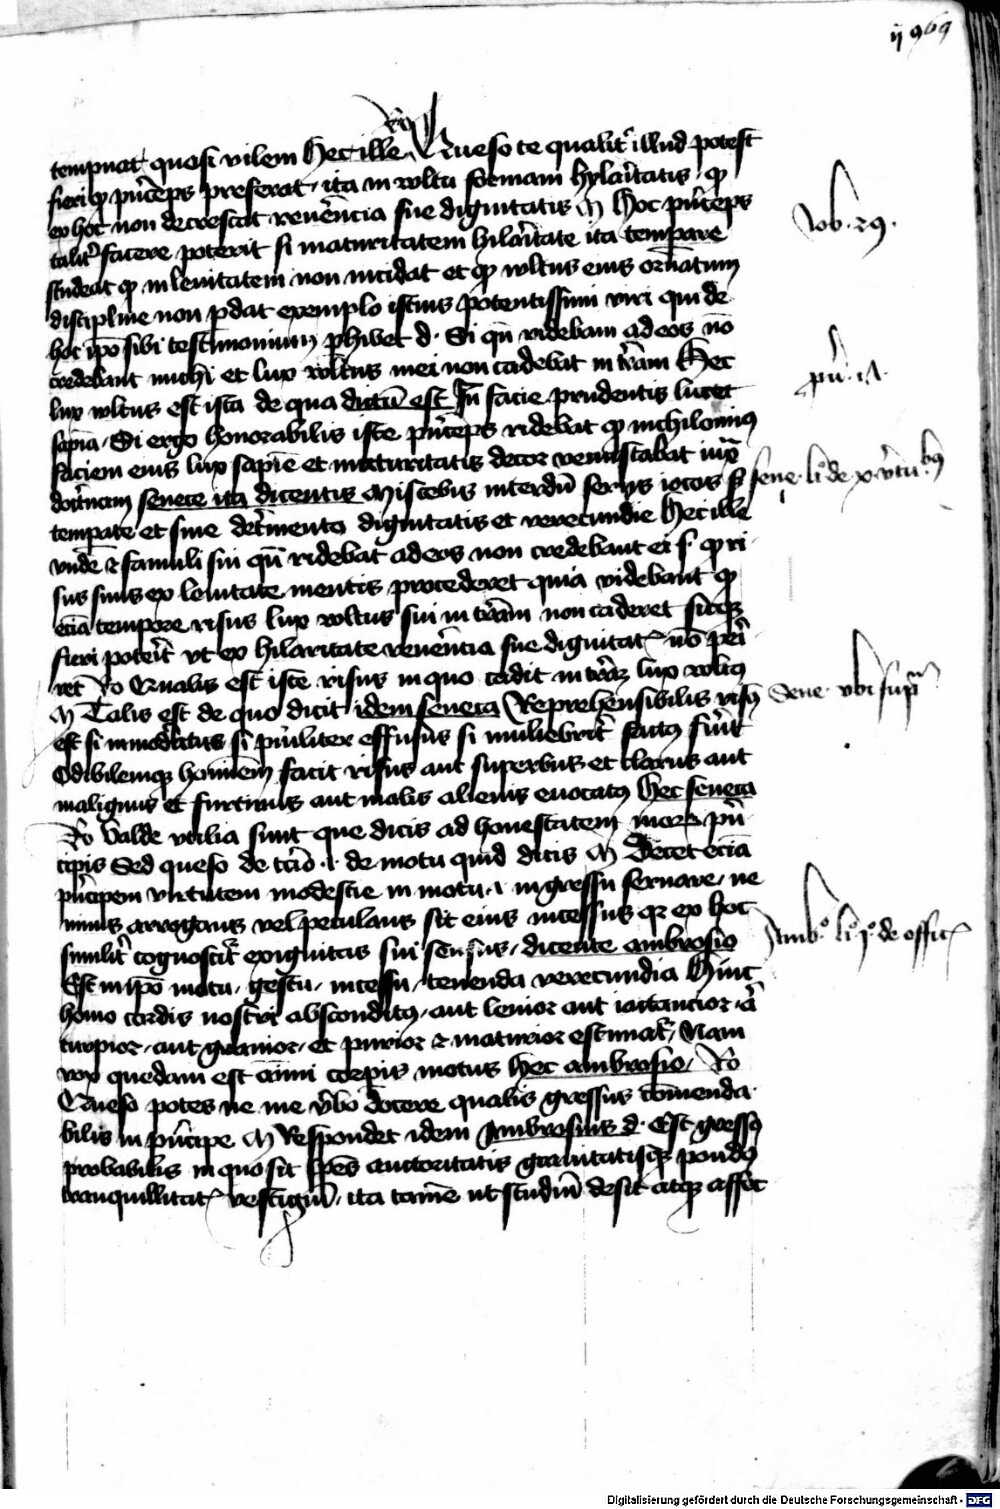 ij 969
Ro
tempnat quasi vilem Hec ille Queso te qualit' illud potest
fieri q pn'ceps preferat ita in voltu formam hylar'tatis q
ex hoc non decrescat reuer'ncia sue dignitatis M Hoc pn'ceps
talit' facere poterit si maturitatem hilar'tate ita tempare
studeat q in leuitatem non incidat et q voltus eius ornatum
discipline non pdat exemplo istius potentissimi viri qui de
hoc ipo sibi testimonium phibet d. Si qn ridebam ad eos no
credebant michi et lux voltus mei non cadebat in tram Hec
lux voltus est ista de qua dictu est In facie prudentis lucet
sapia. Si ergo honorabilis iste pn'ceps ridebat q nichilominus
faciem eius lux sapie et maturitatis decor venustabat iux
doctnam senece ita dicentis Miscebis interdu seriis iocos s
tempate et sine det'mento dignitatis et verecundie Hec ille
vnde et famuli sui qn ridebat ad eos non credebant ei s. q ri
sus suus ex leuitate mentis procederet quia videbant q
ecia tempore risus lux voltus sui in tram non caderet sicq
fieri poterit vt ex hilaritate reuer'ncia sue dignitat no peri
ret Ro Qualis est iste risus in quo cadit in tra lux voltus
M Talis est de quo dicit idem seneca Reprehensibilis risus
est si inmoderatus si pu'iliter effusus si muliebrit' fractus fu'it
Odibilemq hominem facit risus aut superbus et clarus aut
malignus et furtiuus aut malis alienis euocatus Hec seneca
Ro Valde vtilia sunt que dicis ad honestatem mor pn'
cipis Sed queso de tcio .i. de motu quid dicis M Decet ecia
pn'cipem virtutem modestie in motu .i. in gressu seruare ne
nimis arrogans vel petulans sit eius incessus qr ex hoc
similit' cognoscit' exiguitas sui sensus dicente ambrosio
Est in ipo motu gestu incessu tenenda verecundia Hinc
homo cordis nostri absconditus aut leuior aut iactancior a
turpior aut grauior et purior et maturior estimat' Nam
vox quedam est animi corpis motus Hec ambrosio Ro
Queso potes ne me v'bo docere qualis gressus comenda
bilis in pn'cipe M Respondet idem Ambrosius d. Est gressus
probabilis in quo sit spes auctoritatis grauitatisq pondus
tranquillitat vestigiu ita tame ut studiu desit atq affec
Iob .29.
pu' .17.
sene. li° de x v'tu bus
Sene vbi supra
Amb° li° 1° de offic
Digitalisierung gefördert durch die Deutsche Forschungsgemeinschaft - DFG